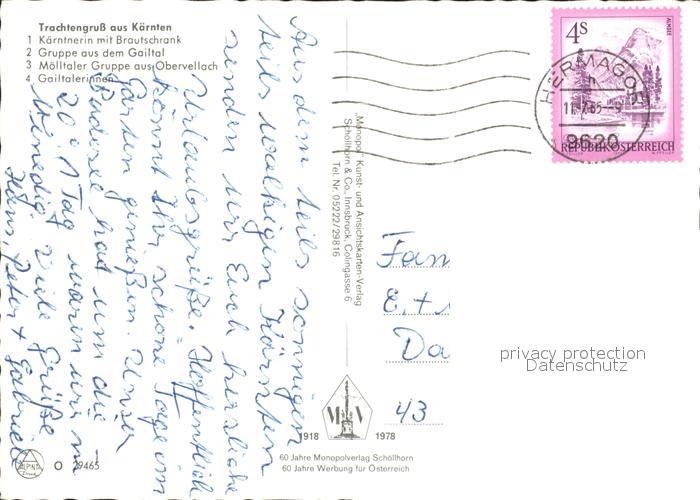 Trachtengruß aus Kärnten
1 Kärntnerin mit Brautschrank
2 Gruppe aus dem Gailtal
3 Mölltaler Gruppe aus Obervellach
4 Gailtalerinnen
Aus dem teils sonnigen
teils wolkigen Kärnten
senden wir Euch herzliche
Urlaubsgrüße. Hoffentlich
könnt Ihr schöne Tage im
Garten genießen. Unser
Badesee hat um die
20°. 1 Tag waren wir in
Venedig. Viele Grüße
Hans Peter + Gabriele
„Monopol" Kunst- und Ansichtskarten-Verlag
Schöllhorn & Co. Innsbruck, Colingasse 6
Tel. Nr. 05222/29816
4S
ALMSEE
REPUBLIK ÖSTERREICH
HERMAGOR
11.-7.85-9
9620
Fam
E. +
Da
43
privacy protection
Datenschutz
M V
1918 1978
60 Jahre Monopolverlag Schöllhorn
60 Jahre Werbung für Österreich
ALPINA
O 29465